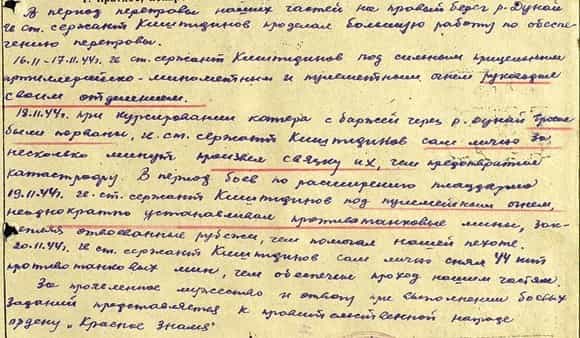 В период переправы наших частей на правый берег р. Дунай
гв. ст. сержант Киштидинов проделал большую работу по обеспе-
чению переправы.
16.11 - 17.11.44г. гв. ст. сержант Киштидинов под сильным прицельным
артиллерийско-минометным и пулеметным огнем руководил
своим отделением.
18.11.44г. при курсировании катера с баржей через р. Дунай троса
были порваны, гв. ст. сержант Киштидинов сам лично за
несколько минут произвел связку их, чем предотвратил
катастрофу. В период боев по расширению плацдарма
19.11.44г. гв. ст. сержант Киштидинов под пулеметным огнем,
неоднократно устанавливал противотанковые мины, зак-
репляя отвоеванные рубежи, чем помогал нашей пехоте.
20.11.44г. гв ст. сержант Киштидинов сам лично снял 44 шт
противотанковых мин, чем обеспечил проход нашим частям.
За проявленное мужество и отвагу при выполнении боевых
заданий представляется к правительственной награде
ордену "Красное Знамя"